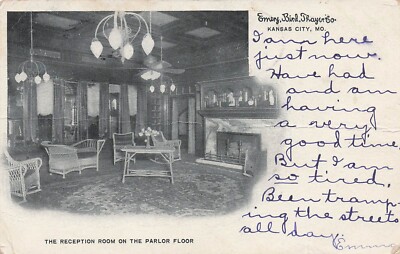 Emery, Bird, Thayer Co.
KANSAS CITY, MO.
I am here
just now.
Have had
and am
having
a very
good time.
But I am
so tired,
Been tramp-
ing the streets
all day.
Emma
THE RECEPTION ROOM ON THE PARLOR FLOOR